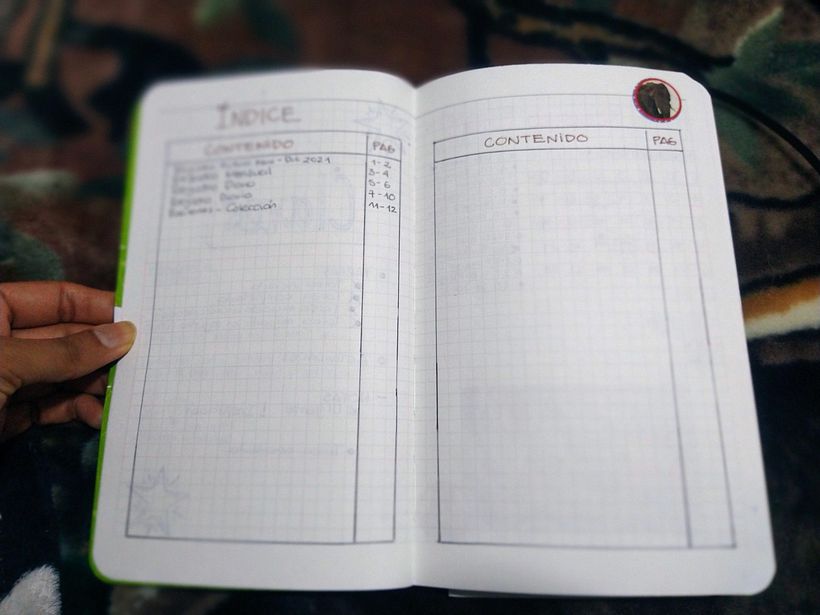 ÍNDICE
CONTENIDO PAG
Registro Futuro - Dic 2021 1-2
Registro Mensual 3-4
Registro Diario 5-6
Registro Diario 7-10
- Colección 11-12
CONTENIDO PAG